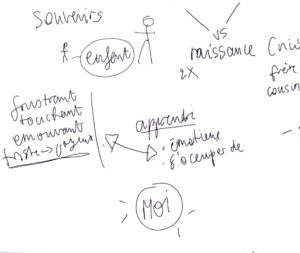 souvenirs
enfant
vs
naissance
2x
frère
cousin
frustrant
touchant
émouvant
triste →
apprendre
: émotions
s'occuper de
MOI